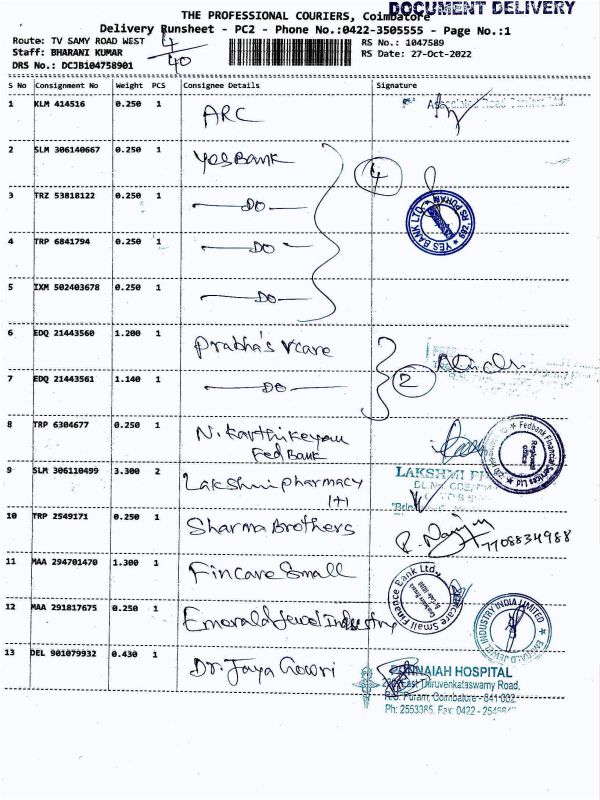 DOCUMENT DELIVERY
THE PROFESSIONAL COURIERS, Coimbatore
Delivery Runsheet - PC2 - Phone No.:0422-3505555 - Page No.:1
Route: TV SAMY ROAD WEST RS No.: 1047589
Staff: BHARANI KUMAR RS Date: 27-Oct-2022
DRS No.: DCJB104758901
4
40
S No Consignment No Weight PCS Consignee Details Signature
1 KLM 414516 0.250 1 ARC
2 SLM 306140667 0.250 1 Yes Bank
4
3 TRZ 53818122 0.250 1 DO
YES BANK LTD. RS PURAM
4 TRP 6841794 0.250 1 DO
5 IXM 502403678 0.250 1 DO
6 EDQ 21443560 1.200 1 Prabha's Vcare
7 EDQ 21443561 1.140 1 DO
2
8 TRP 6304677 0.250 1 N. Karthikeyan
Fed Bank
Fedbank Financial Services Ltd
9 SLM 306110499 3.300 2 Lakshmi pharmacy
1+1
LAKSHMI
10 TRP 2549171 0.250 1 Sharma Brothers
7708834988
11 MAA 294701470 1.300 1 Fincare Small
Fincare Small Finance Bank Ltd.
12 MAA 291817675 0.250 1 Emerald Jewel Industry
EMERALD JEWEL INDUSTRY INDIA LIMITED
13 DEL 901079932 0.430 1 Dr. Jaya Gowri
HOSPITAL
East Thiruvenkataswamy Road,
R.S. Puram, Coimbatore - 641 002.
Ph: 2553385, Fax: 0422 -